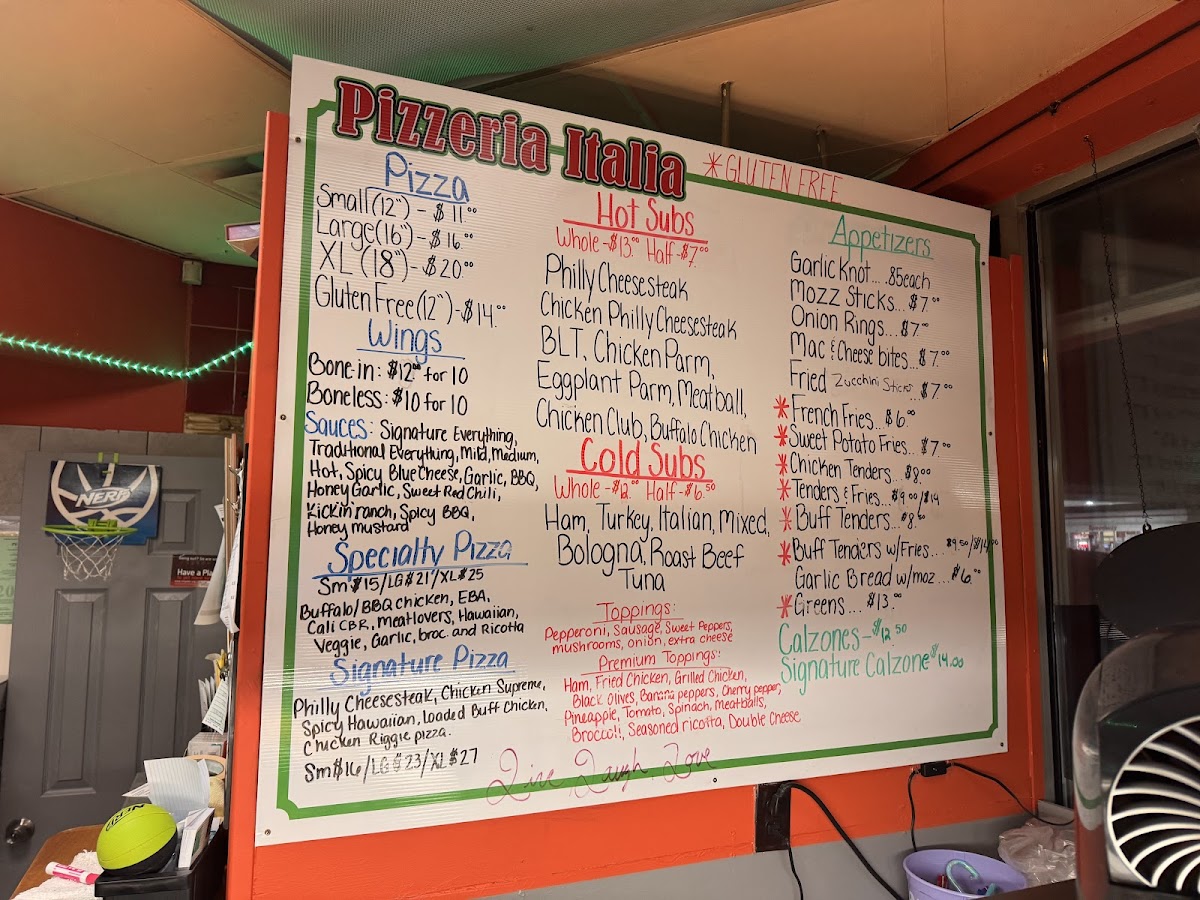 Pizzeria Italia
*GLUTEN FREE
Pizza
Small (12") - $11.00
Large (16") - $16.00
XL (18") - $20.00
Gluten Free (12") - $14.00
Wings
Bone-in: $12.00 for 10
Boneless: $10 for 10
Sauces: Signature Everything,
Traditional Everything, Mild, Medium,
Hot, Spicy Blue Cheese, Garlic, BBQ,
Honey Garlic, Sweet Red Chili,
Kickin' ranch, Spicy BBQ,
Honey mustard
Specialty Pizza
Sm $15/LG $21/XL $25
Buffalo/BBQ chicken, EBA,
Cali CBR, meatlovers, Hawaiian,
Veggie, Garlic, broc. and Ricotta
Signature Pizza
Philly Cheesesteak, Chicken Supreme,
Spicy Hawaiian, Loaded Buff Chicken,
Chicken Riggie pizza.
Sm $16/LG $23/XL $27
Hot Subs
Whole - $13.00 Half - $7.00
Philly Cheesesteak
Chicken Philly Cheesesteak
BLT, Chicken Parm,
Eggplant Parm, Meatball,
Chicken Club, Buffalo Chicken
Cold Subs
Whole - $12.00 Half - $6.50
Ham, Turkey, Italian, Mixed,
Bologna, Roast Beef
Tuna
Toppings:
Pepperoni, Sausage, Sweet Peppers,
mushrooms, onion, extra cheese
Premium Toppings:
Ham, Fried Chicken, Grilled Chicken,
Black olives, Banana peppers, Cherry pepper,
Pineapple, Tomato, Spinach, Meatballs,
Broccoli, Seasoned ricotta, Double Cheese
Live Laugh Love
Appetizers
Garlic Knot... .85 each
Mozz Sticks... $7.00
Onion Rings... $7.00
Mac & Cheese bites... $7.00
Fried Zucchini Sticks... $7.00
*French Fries... $6.00
*Sweet Potato Fries... $7.00
*Chicken Tenders... $8.00
*Tenders & Fries... $9.00/$14
*Buff Tenders... $8.50
*Buff Tenders w/Fries... $9.50/$14.00
Garlic Bread w/moz... $6.00
*Greens... $13.00
Calzones - $12.50
Signature Calzone $14.00
NERF
Have a
NERF